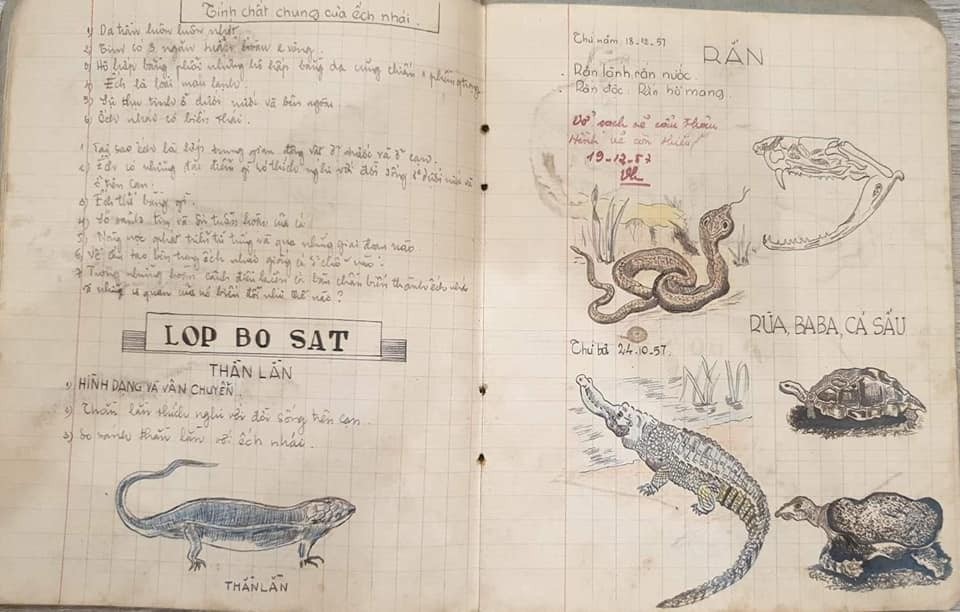 Tính chất chung của ếch nhái.
1) Da trần luôn luôn nhớt.
2) Tim có 3 ngăn tuần hoàn 2 vòng.
3) Hô hấp bằng phổi nhưng hô hấp bằng da cũng chiếm 1 phần q trọng
4) Ếch là loài máu lạnh.
5) Sự thụ tinh ở dưới nước và bên ngoài
6) Ếch nhái có biến thái.
1) Tại sao ếch là lớp trung gian động vật ở nước và ở cạn.
2) Ếch có những đặc điểm gì để thích nghi với đời sống ở dưới nước và
ở trên cạn.
3) Ếch thở bằng gì.
4) So sánh tim và bộ tuần hoàn của cá
5) Nòng nọc phát triển từ trứng và qua những giai đoạn nào
6) Vẽ cấu tạo bên trong ếch nhái giống cá ở chỗ nào?
7) Trong những hoàn cảnh điều kiện gì bàn chân biến thành ếch nhái
và những cơ quan của nó biến đổi như thế nào?
LOP BO SAT
THẰN LẰN
1) HÌNH DẠNG VÀ VẬN CHUYỂN
2) Thằn lằn thích nghi với đời sống trên cạn.
3) So sánh thằn lằn với ếch nhái.
THẰN LẰN
Thứ năm 18-12-57
RẮN
. Rắn lành, rắn nước.
. Rắn độc. Rắn hổ mang.
Vở sạch sẽ cẩn thận
Hình vẽ còn thiếu
19-12-57
RÙA, BABA, CÁ SẤU
Thứ ba 24.10.57.